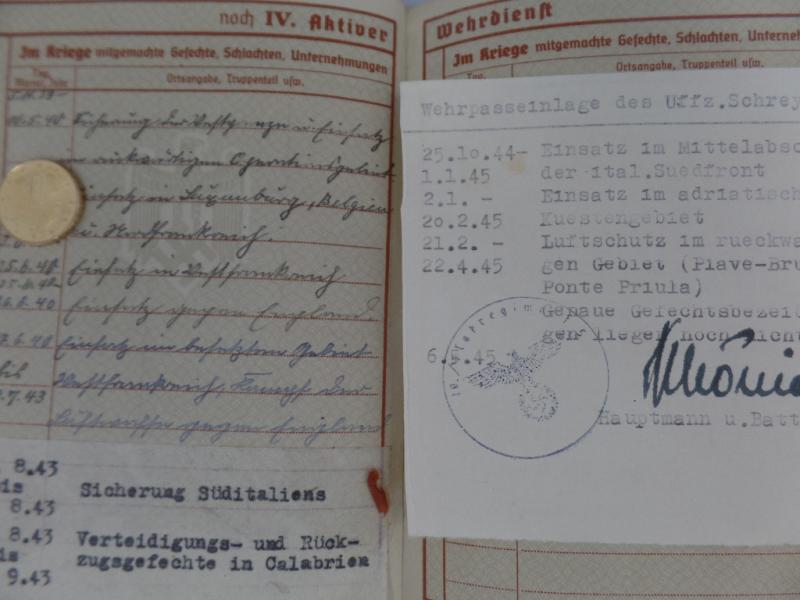 noch IV. Aktiver
Im Kriege mitgemachte Gefechte, Schlachten, Unternehmungen
Ortsangabe, Truppenteil usw.
10.5.40 Sicherung der Westgrenze u. Einsatz
im rückwärtigen Operationsgebiet
Einsatz in Luxemburg, Belgien
u. Nordfrankreich.
25.6.40 Einsatz in Westfrankreich
26.6.40 Einsatz gegen England
27.6.40 Einsatz im besetzten Gebiet
Westfrankreich, Kampf der
.7.43 Luftwaffe gegen England
8.43
is Sicherung Süditaliens
8.43
8.43 Verteidigungs- und Rück-
is zugsgefechte in Calabrien
9.43
Wehrdienst
Im Kriege mitgemachte Gefechte, Schlachten, Unterneh
Ortsangabe, Truppenteil usw.
Wehrpasseinlage des Uffz.Schrey
25.10.44- Einsatz im Mittelabsc
1.1.45 der ital.Suedfront
2.1. - Einsatz im adriatisch
20.2.45 Kuestengebiet
21.2. - Luftschutz im rueckwa
22.4.45 gen Gebiet (Piave-Bru
Ponte Priula)
Genaue Gefechtsbezeic
gen liegen noch nicht
6. .45
Hauptmann u.Batt